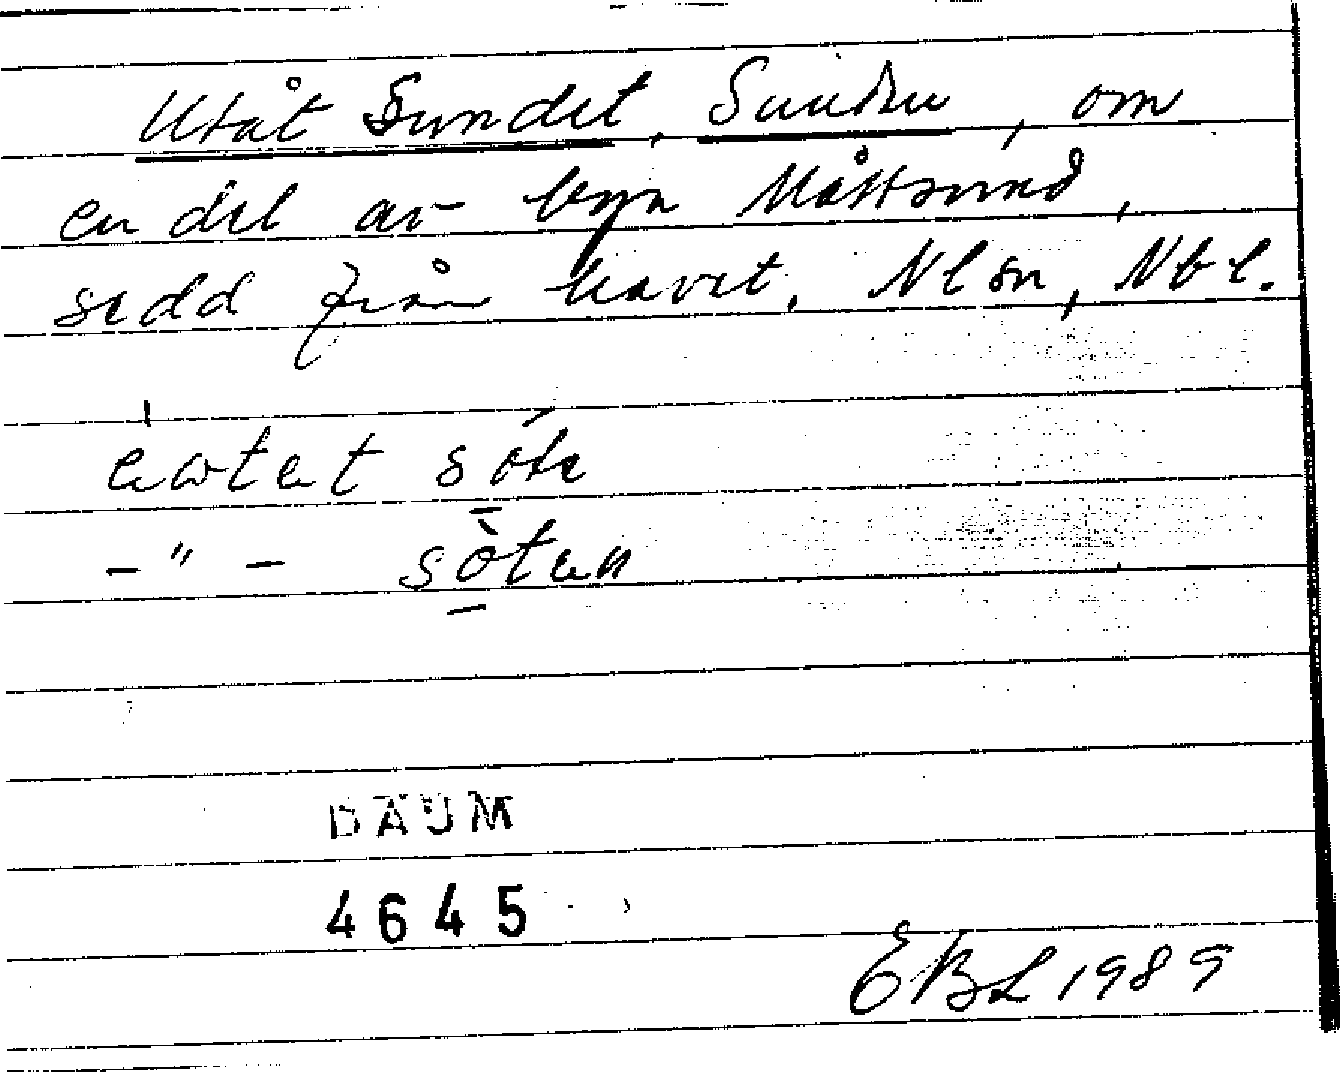 Utåt Sundet, Sunden, om
en del av byn Måttsund,
sedd från havet. Nlsn, Nbl.
sóte
-"- sòten
DAUM
4645
EBL 1989